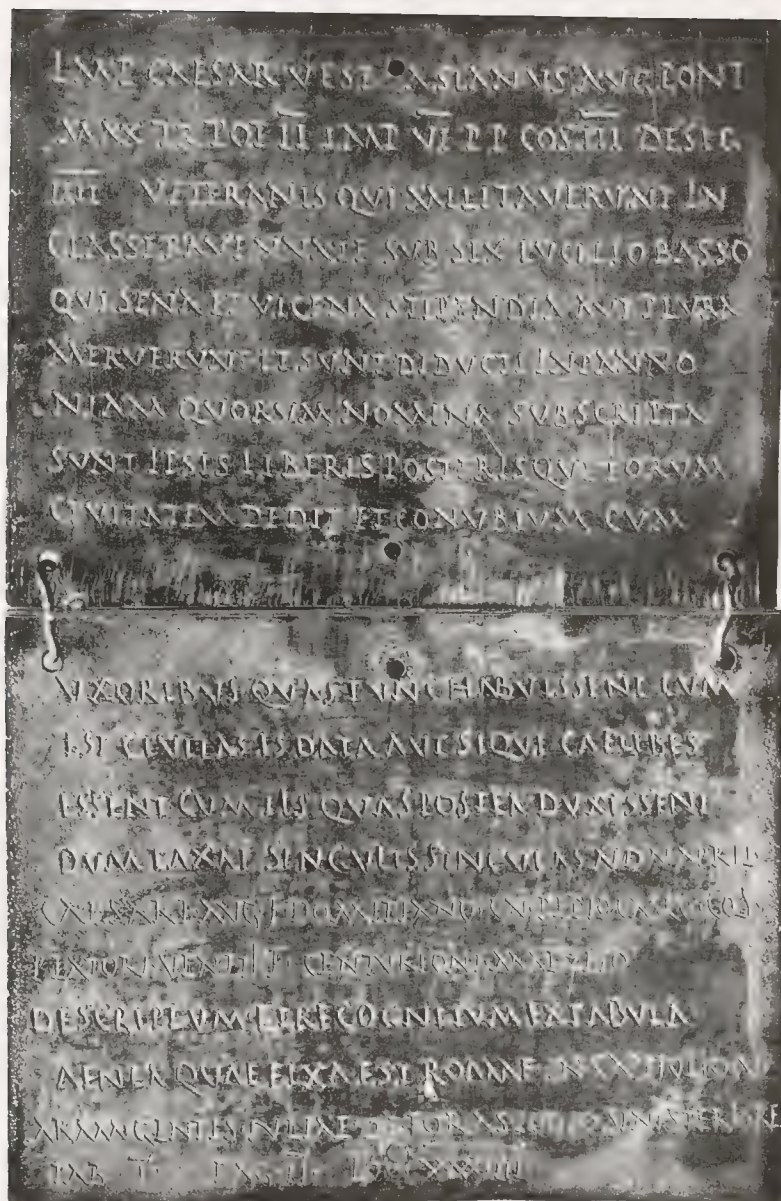 IMP CAESAR VESPASIANVS AVG PONT
MAX TR POT II IMP VI P P COS III DESIG
IIII VETERANIS QVI MILITAVERVNT IN
CLASSE RAVENNATE SVB SEX LVCILIO BASSO
QVI SENA ET VICENA STIPENDIA AVT PLVRA
MERVERVNT ET SVNT DEDVCTI IN PANNO
NIAM QVORVM NOMINA SVBSCRIPTA
SVNT IPSIS LIBERIS POSTERISQVE EORVM
CIVITATEM DEDIT ET CONVBIVM CVM
VXORIBVS QVAS TVNC HABVISSENT CVM
EST CIVITAS IS DATA AVT SIQVI CAELIBES
ESSENT CVM IIS QVAS POSTEA DVXISSENT
DVM TAXAT SINGVLI SINGVLAS NON APRIL
CAESARE AVG F DOMITIANO CN PEDIO CASCO COS
CENTVRIONI
DESCRIPTVM ET RECOGNITVM EX TABVLA
AENEA QVAE FIXA EST ROMAE IN CAPITOLIO AD
ARAM GENTIS IVLIAE DE FORAS PODIO SINISTERIORE
TAB I PAG II LOC XXXXIIII